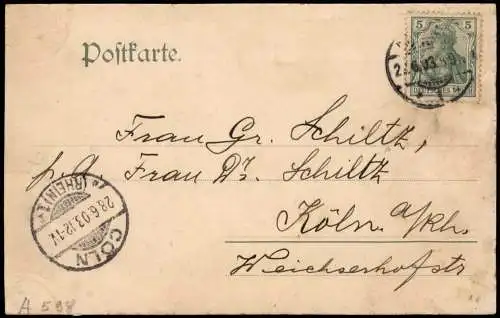 Postkarte.
5 5
DEUTSCHES REICH
28.6.03.
Frau Gr. Schiltz,
p. a. Frau Dr. Schiltz,
Köln a/Rh.
Weichserhofstr
CÖLN
28.6.03.12-1V.
(RHEIN) 1
A 598